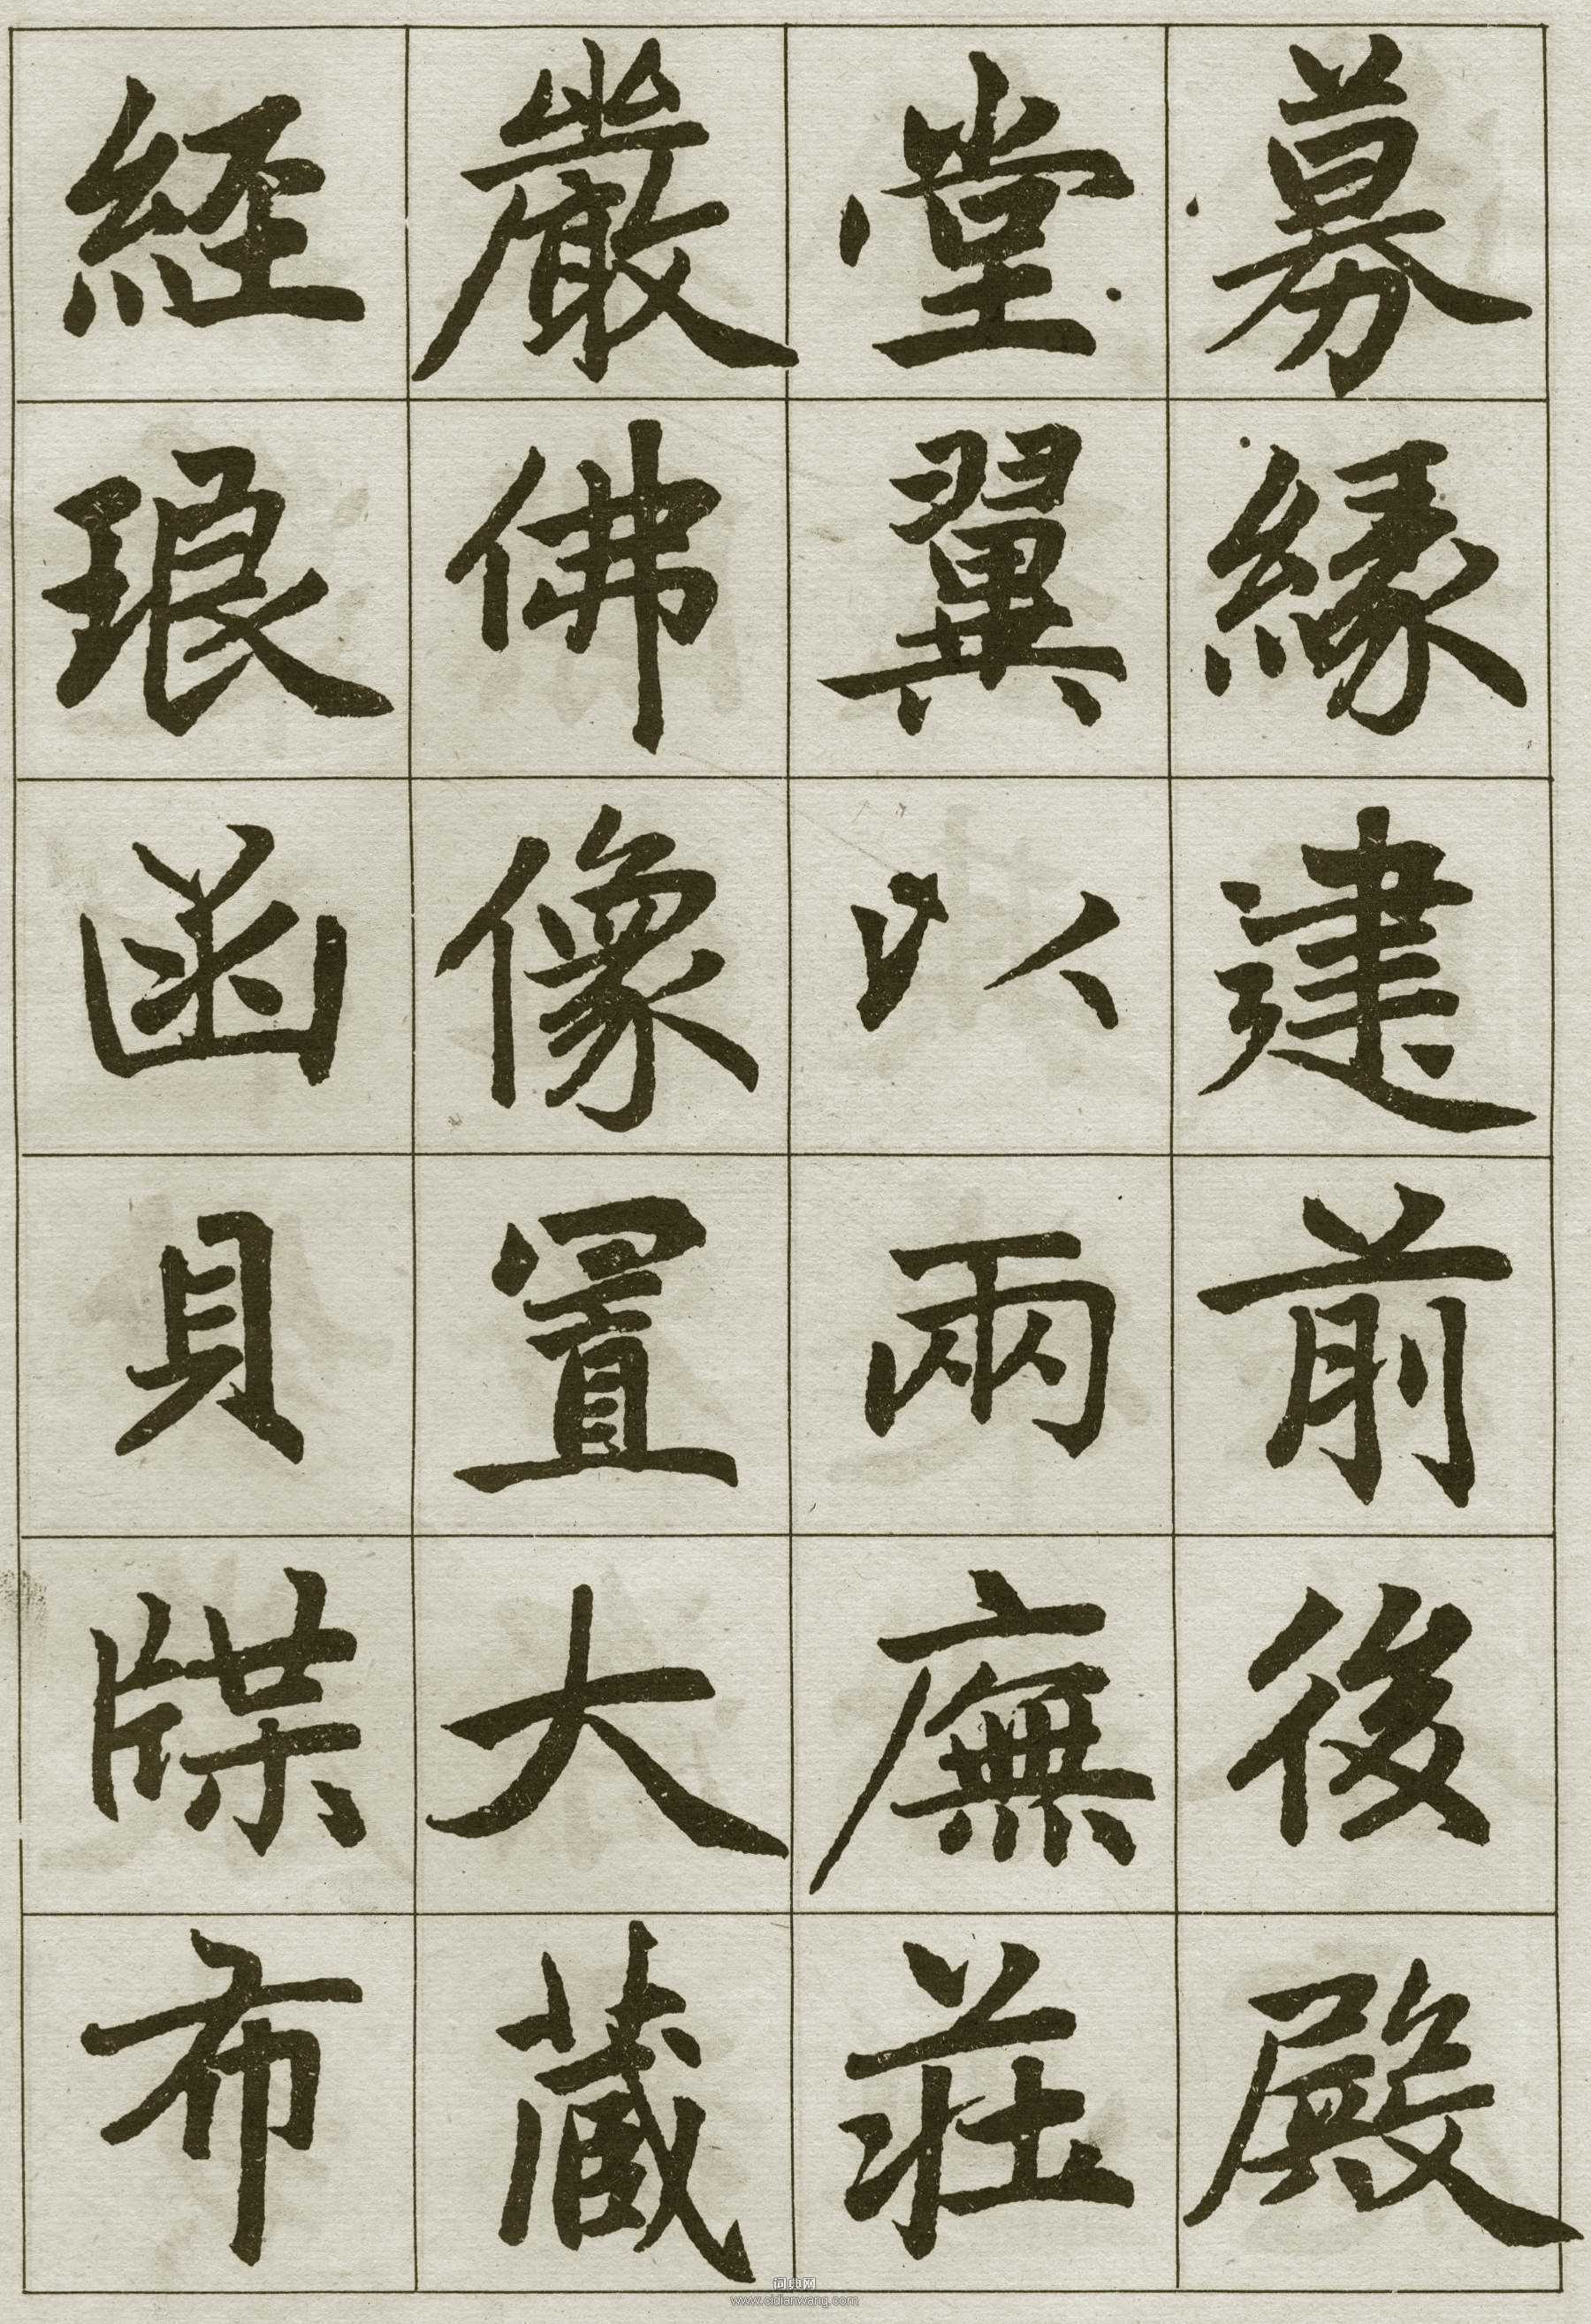 募緣建前後殿
堂翼以兩廡莊
嚴佛像置大藏
經琅函貝牒布
www.cidianwang.com